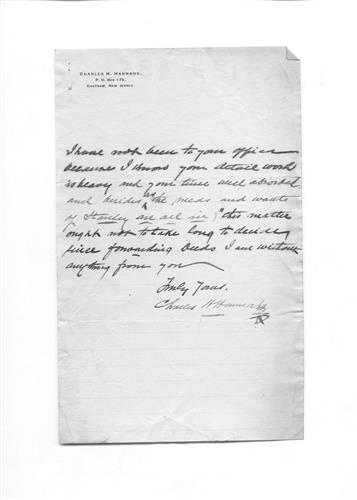 CHARLES H. HANNANS,
P. O. BOX 175,
CHATHAM, NEW JERSEY.
I have not been to your office
because I know your detail work
is heavy and your time well absorbed
and besides as the needs and wants
of Stanley are all in this matter
ought not to take long to decide
since forwarding I am without
anything from you
Truly Yours.
Charles H Hannans